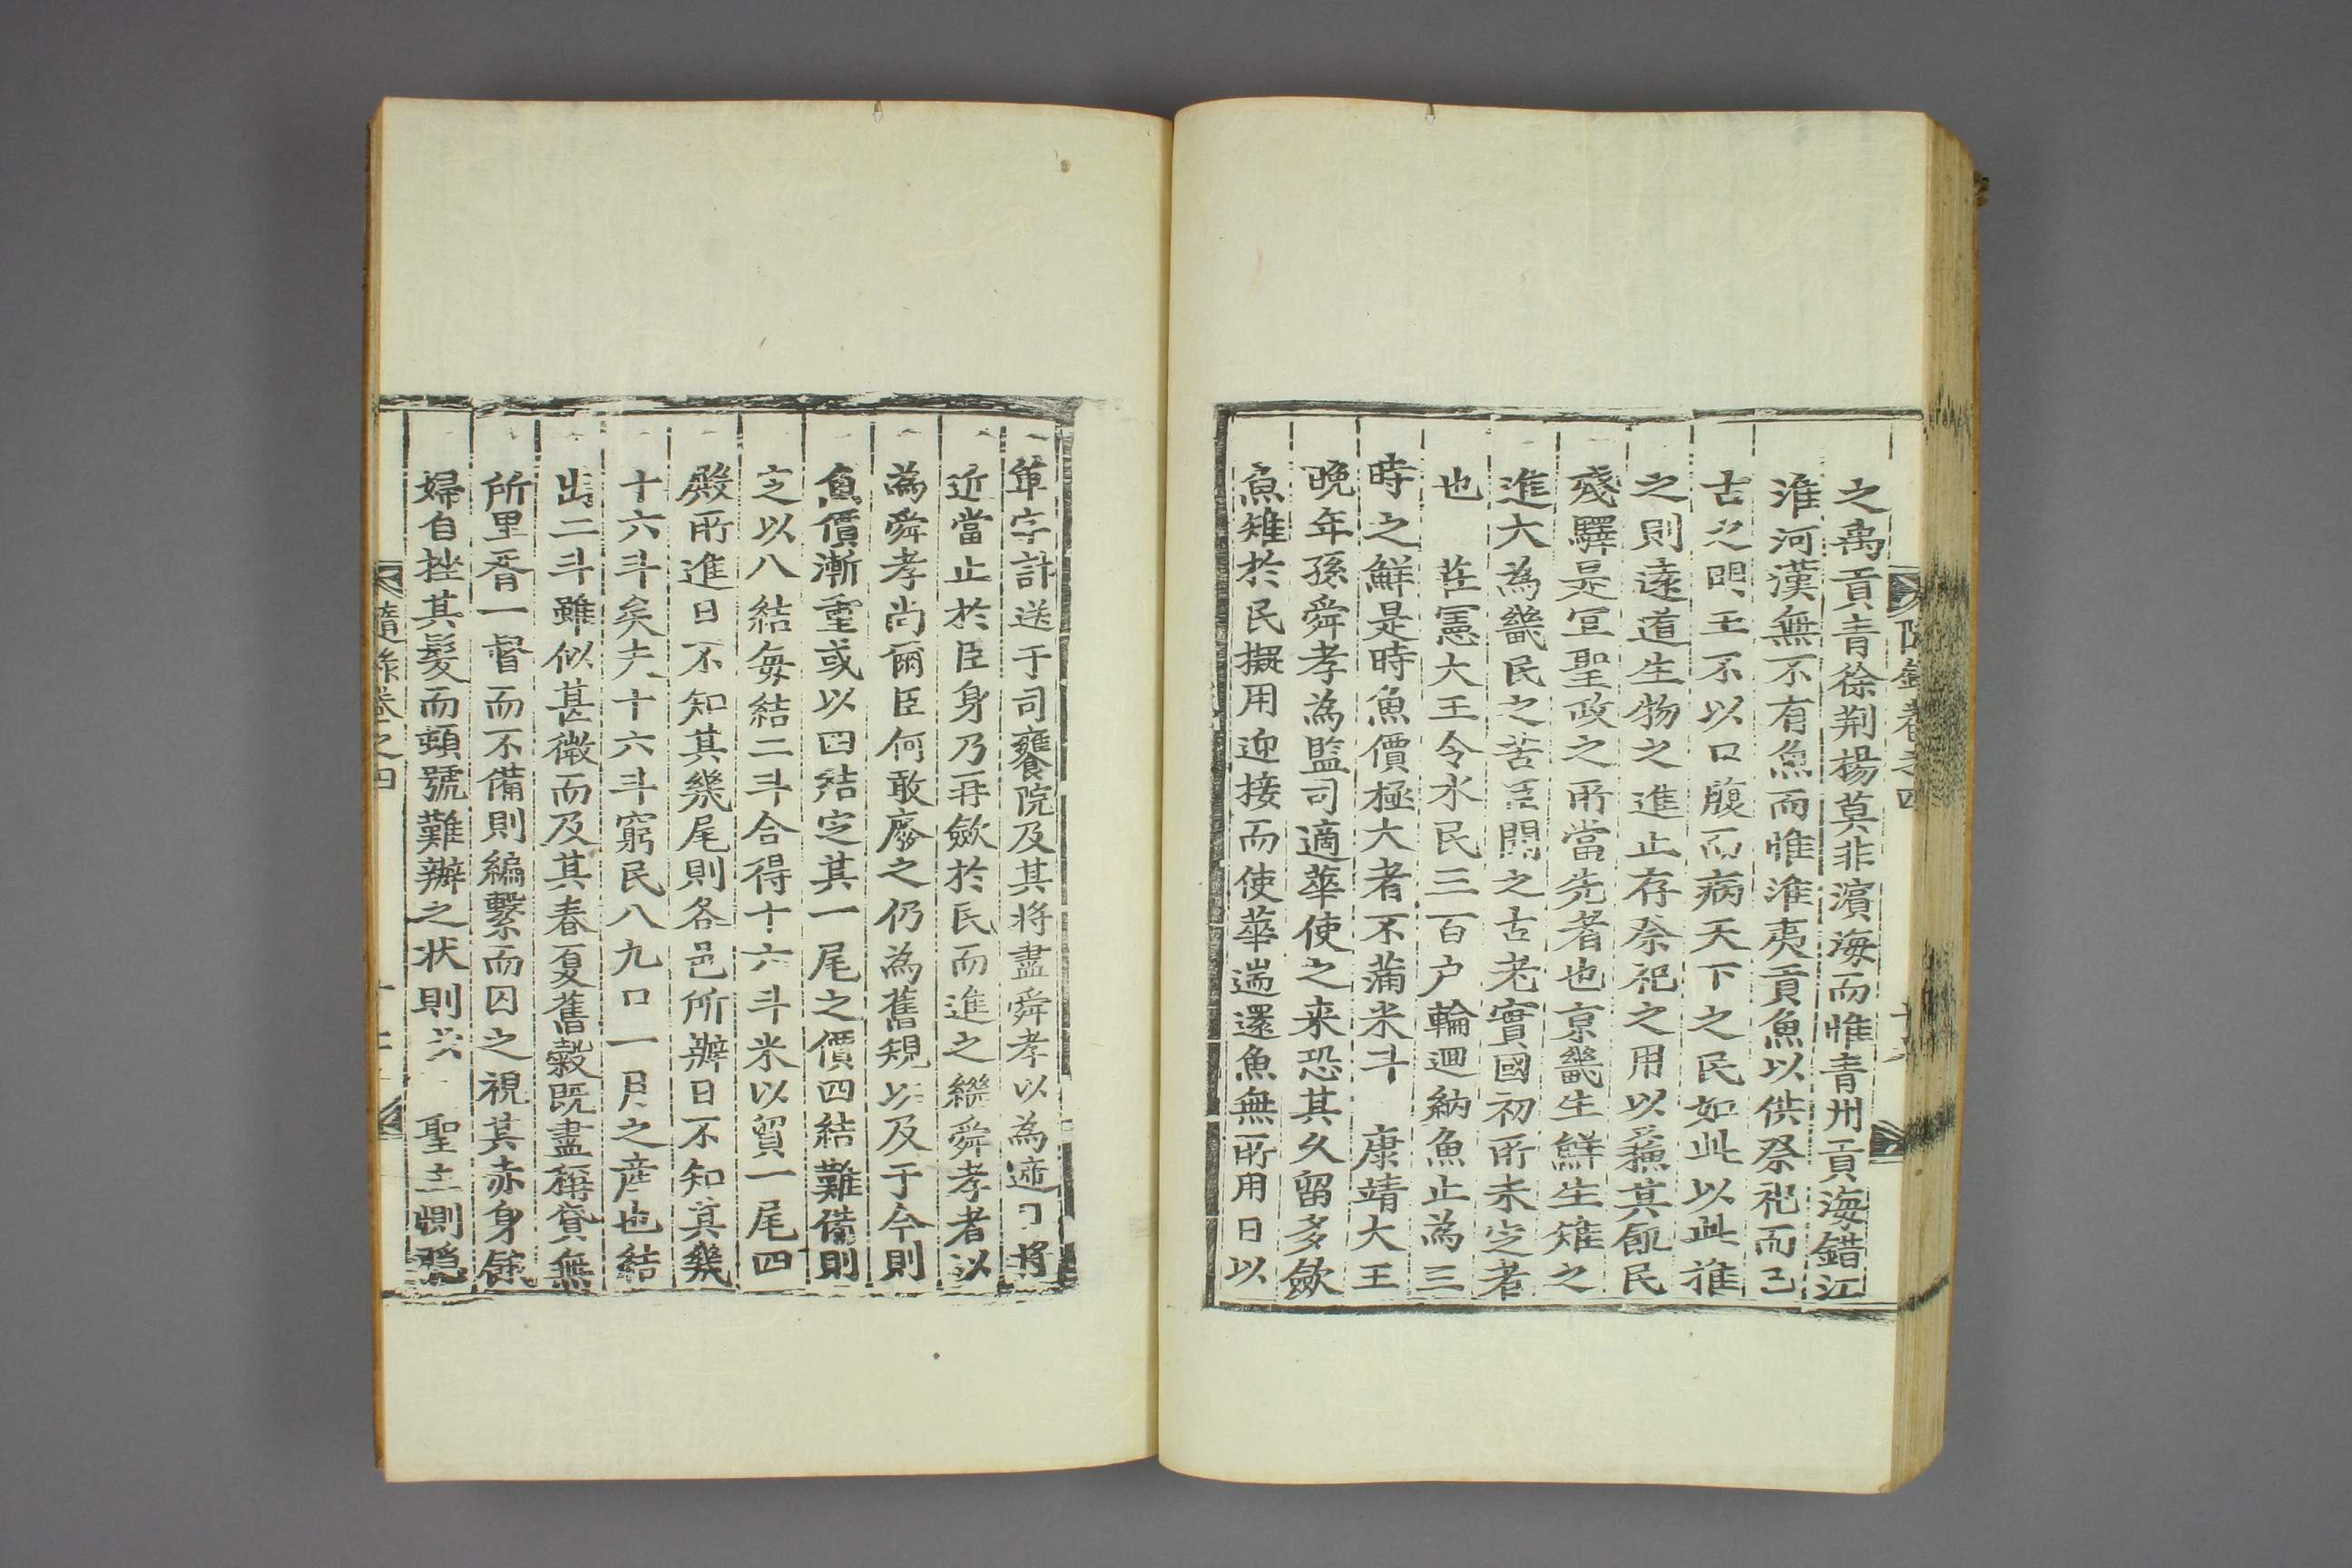 之禹貢青徐荆揚莫非濵海而惟青州貢海錯江
淮河漢無不有魚而惟淮夷貢魚以供祭祀而已
古之明王不以口腹而病天下之民如此以此推
之則遠道生物之進止存祭祀之用以蘓其飢民
殘驛是宣聖政之所當先者也京畿生鮮生雉之
進大為畿民之苦臣聞之古老實國初所未定者
也 莊憲大王令水民三百户輪迴納魚止為三
時之鮮是時魚價極大者不蒲米斗 康靖大王
晚年孫舜孝為監司適華使之来恐其久留多歛
魚雉於民擬用迎接而使華遄還魚無所用日以
隨錄卷之四
單字計送于司饔院及其将盡舜孝以為遞 将
近當止於臣身乃再歛於民而進之繼舜孝者以
為舜孝尚爾臣何敢廢之仍為舊規以及于今則
魚價漸重或以四結定其一尾之價四結難備則
定以八結每結二斗合得十六斗米以貿一尾四
殿所進日不知其幾尾則各邑所辦日不知其幾
十六斗矣夫十六斗窮民八九口一月之産也結
出二斗雖似甚微而及其春夏舊穀既盡稱貸無
所里胥一督而不備則編繫而囚之視其赤身餓
婦自挫其髮而顛號難辦之状則 聖主惻隠
隨錄卷之四